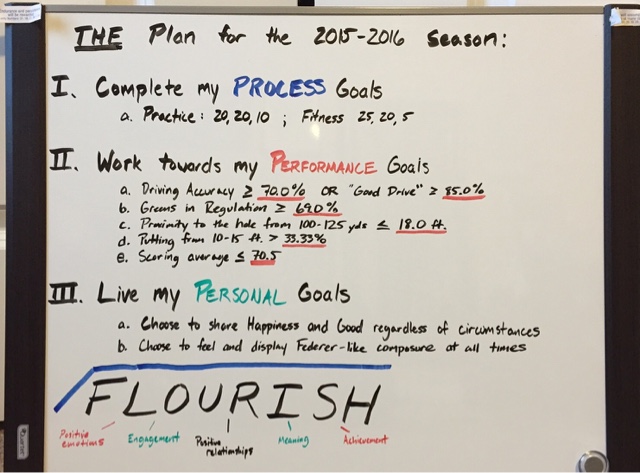 THE Plan for the 2015-2016 Season:
I. Complete my PROCESS Goals
a. Practice: 20, 20, 10 ; Fitness 25, 20, 5
II. Work towards my PERFORMANCE Goals
a. Driving Accuracy ≥ 70.0% OR "Good Drive" ≥ 85.0%
b. Greens in Regulation ≥ 69.0%
c. Proximity to the hole from 100-125 yds ≤ 18.0 ft.
d. Putting from 10-15 ft. > 33.33%
e. Scoring average ≤ 70.5
III. Live my PERSONAL Goals
a. Choose to share Happiness and Good regardless of circumstances
b. Choose to feel and display Federer-like composure at all times
FLOURISH
Positive emotions
Engagement
Positive relationships
Meaning
Achievement